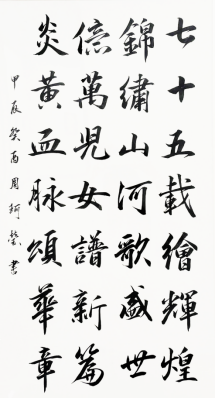 七十五載繪輝煌
錦繡山河歌盛世
億萬兒女譜新篇
炎黃血脉頌華章
甲辰癸酉周珂瑩書